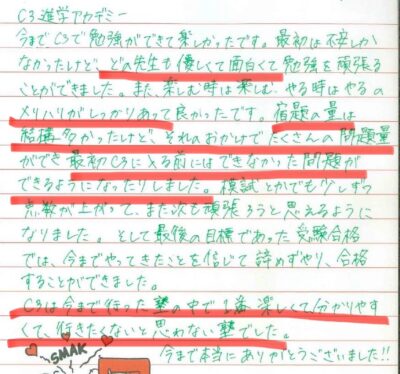 C3進学アカデミー
今までC3で勉強ができて楽しかったです。最初は不安しか
なかったけど、どの先生も優しくて面白くて勉強を頑張る
ことができました。また、楽しむ時は楽しむ、やる時はやるの
メリハリがしっかりあって良かったです。宿題の量は
結構多かったけど、それのおかげでたくさんの問題量
ができ最初C3に入る前にはできなかった問題が
できるようになったりしました。模試とかでも少しずつ
点数が上がって、また次も頑張ろうと思えるように
なりました。そして最後の目標であった受験合格
では、今までやってきたことを信じて諦めずやり、合格
することができました。
C3は今まで行った塾の中で1番楽しくて分かりやす
くて、行きたくないと思わない塾でした。
今まで本当にありがとうございました!!
SMAK